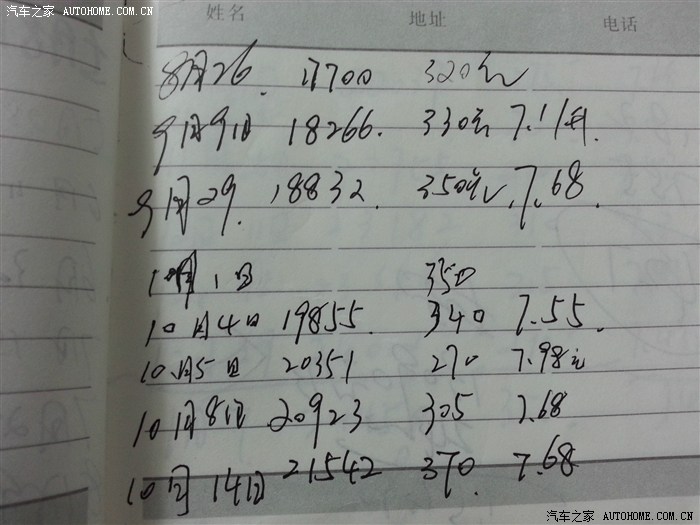 汽车之家 AUTOHOME.COM.CN
姓名 地址 电话
8月26. 17700 320元
9月9日 18266. 330元 7.11/升.
9月29. 18832. 350元, 7.68.
10月1日 350
10月4日 19855. 340 7.55.
10月5日 20351 270 7.98元
10月8日 20923 305 7.68
10月14日 21542 370. 7.68
汽车之家 AUTOHOME.COM.CN